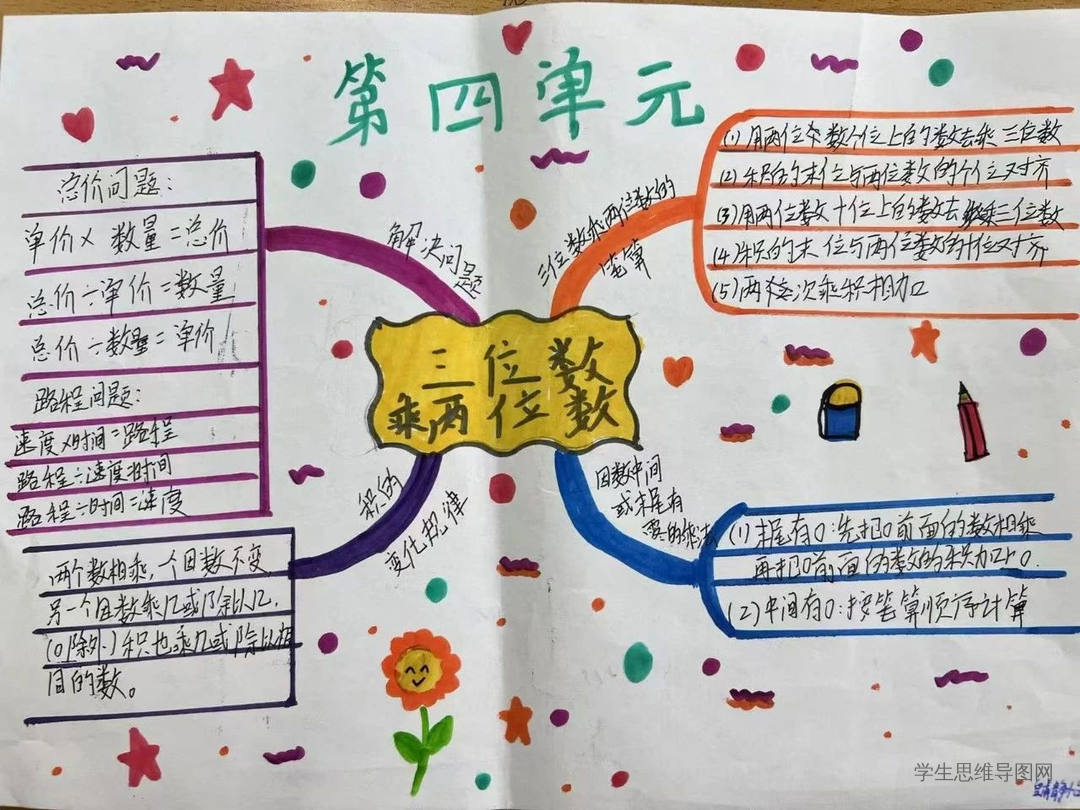 第四单元
总价问题:
单价×数量=总价
总价÷单价=数量
总价÷数量=单价
路程问题:
速度×时间=路程
路程÷速度=时间
路程÷时间=速度
解决问题
三位数乘两位数的
笔算
(1)用两位数个位上的数去乘三位数
(2)积的末位与两位数的个位对齐
(3)用两位数十位上的数去乘三位数
(4)积的末位与两位数的十位对齐
(5)两次乘积相加
三位数
乘两位数
积的
变化规律
两个数相乘,一个因数不变,
另一个因数乘几或除以几,
(0除外)积也乘几或除以相
同的数。
因数中间
或末尾有
零的乘法
(1)末尾有0:先把0前面的数相乘
再把0前面的数的积加上0.
(2)中间有0:按笔算顺序计算
学生思维导图网